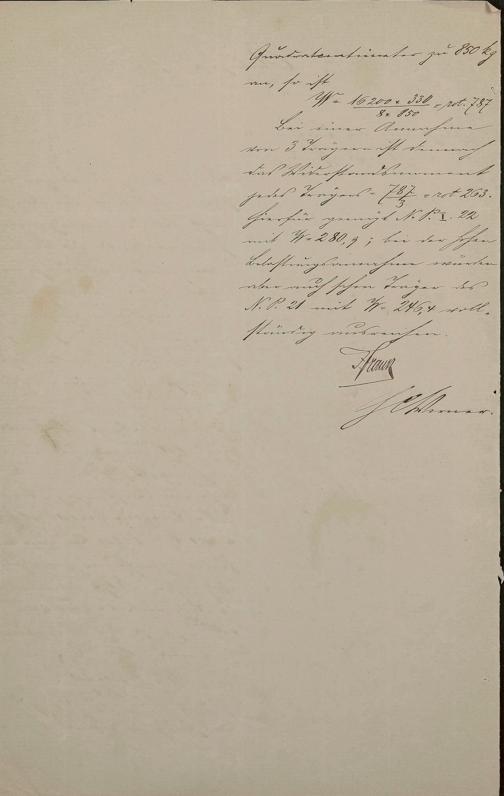 Quadratcentimeter zu 850 kg
an, so ist
W = 16200 × 330 / 8 × 850 = rot. 787
Bei einer Annahme
von 3 Trägern ist demnach
das Widerstandsmoment
jedes Trägers = 787/3 = rot 263.
Hierfür genügt N. P. I. 22
mit W = 280,9; bei der hohen
Belastungsannahme würden
aber auch schon Träger des
N. P. 21 mit W = 246,4 voll-
ständig ausreichen.
Werner.